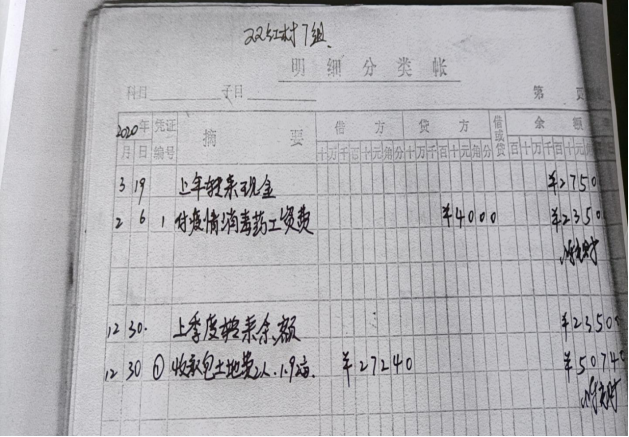 双红村7组
明细分类帐
科目 子目 第 页
2020年 凭证 摘要 借方 贷方 借或贷 余额
月 日 编号 十万千百十元角分 十万千百十元角分 百十万千百十元
3 19 上年转来现金 ¥2750
2 6 1 付疫情消毒药工资费 ¥4000 ¥2350
12 30. 上季度转来余额 ¥2350
12 30 ① 收款包土地费2人.1.92亩. ¥27240 ¥50740